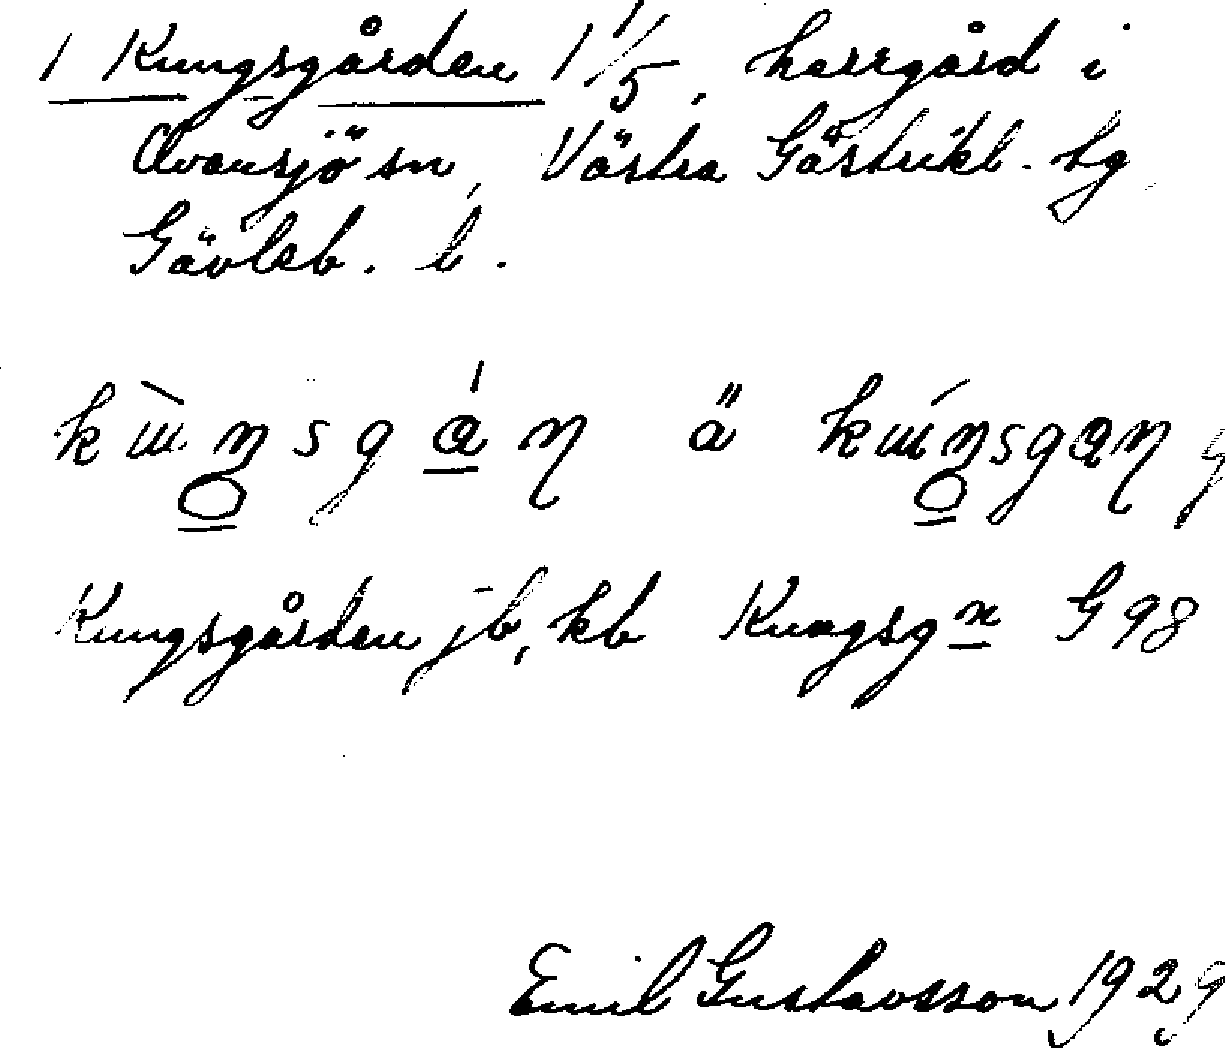 1 Kungsgården 1 1/5, herrgård i
Ovansjö sn, Västra Gästrikl. tg
Gävleb. l.
ä
Kungsgården jb, kb Kungsgn G 98
Emil Gustavsson 1929